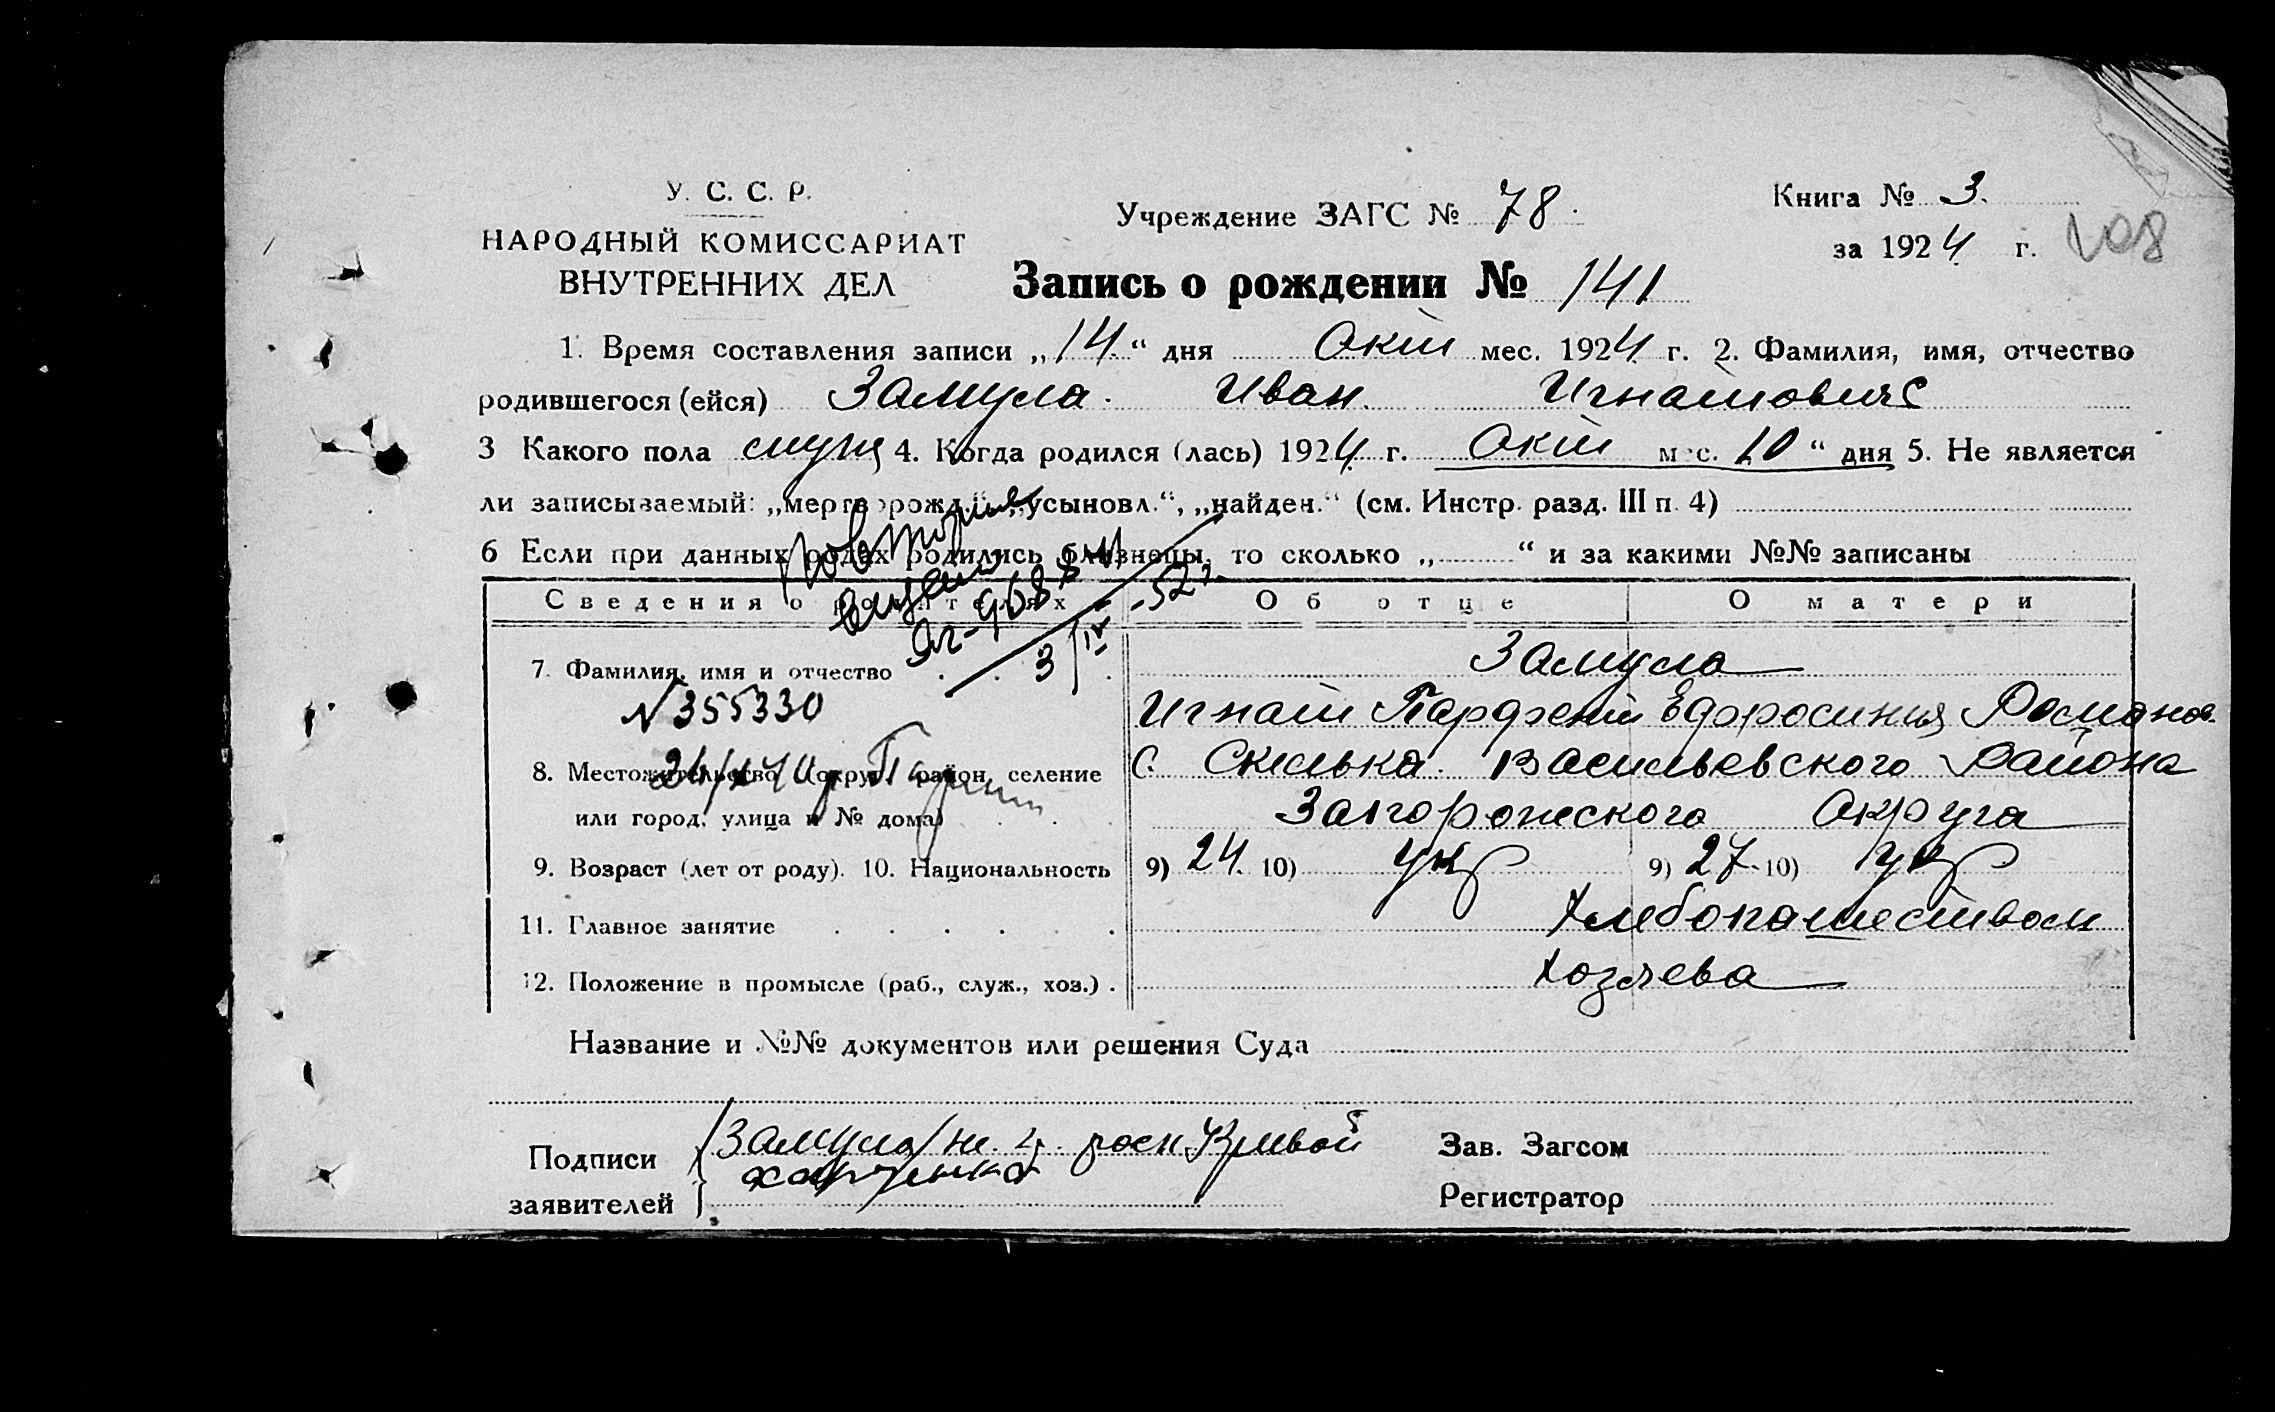 У. С. С. Р.
НАРОДНЫЙ КОМИССАРИАТ
ВНУТРЕННИХ ДЕЛ
Учреждение ЗАГС № 78.
Книга № 3.
за 1924 г.
108
Запись о рождении № 141
1. Время составления записи „14.“ дня Окт мес. 1924 г. 2. Фамилия, имя, отчество
родившегося (ейся) Замула. Иван. Игнатович
3 Какого пола муж 4. Когда родился (лась) 1924 г. Окт мес. 10 “ дня 5. Не является
ли записываемый: „мертворожд.“, „усыновл.“, „найден.“ (см. Инстр. разд. III п. 4)
6 Если при данных родах родились близнецы, то сколько „ “ и за какими №№ записаны
Повторные
Сведения о родителях Об отце О матери
3/IV
7. Фамилия, имя и отчество Замула
№ 355330
Игнат Парфент Ефросиния Романов.
8. Местожительство (округ, район, селение с. Скелька. Васильевского Района
или город, улица и № дома) Запорожского Округа
9. Возраст (лет от роду). 10. Национальность 9) 24. 10) укр 9) 27. 10) укр
11. Главное занятие Хлебопашеством
12. Положение в промысле (раб., служ., хоз.) Хозяева
Название и №№ документов или решения Суда
Подписи заявителей Замула
Зав. Загсом
Регистратор